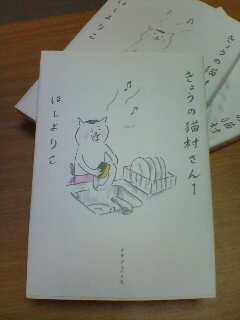 きょうの猫村さん 1
ほしよりこ
マガジンハウス
きょうの猫村さん
ほしよりこ
猫村さん